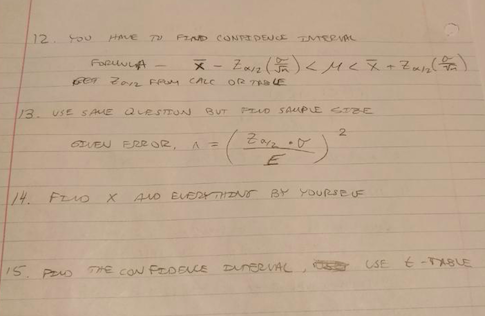 12. YOU HAVE TO FIND CONFIDENCE INTERVAL
FORMULA - x̄ - Zα/2 (σ/√n) < μ < x̄ + Zα/2 (σ/√n)
GET Zα/2 FROM CALC OR TABLE
13. USE SAME QUESTION BUT FIND SAMPLE SIZE
GIVEN ERROR, n = (Zα/2 · σ / E)²
14. FIND X AND EVERYTHING BY YOURSELF
15. FIND THE CONFIDENCE INTERVAL, USE t-TABLE